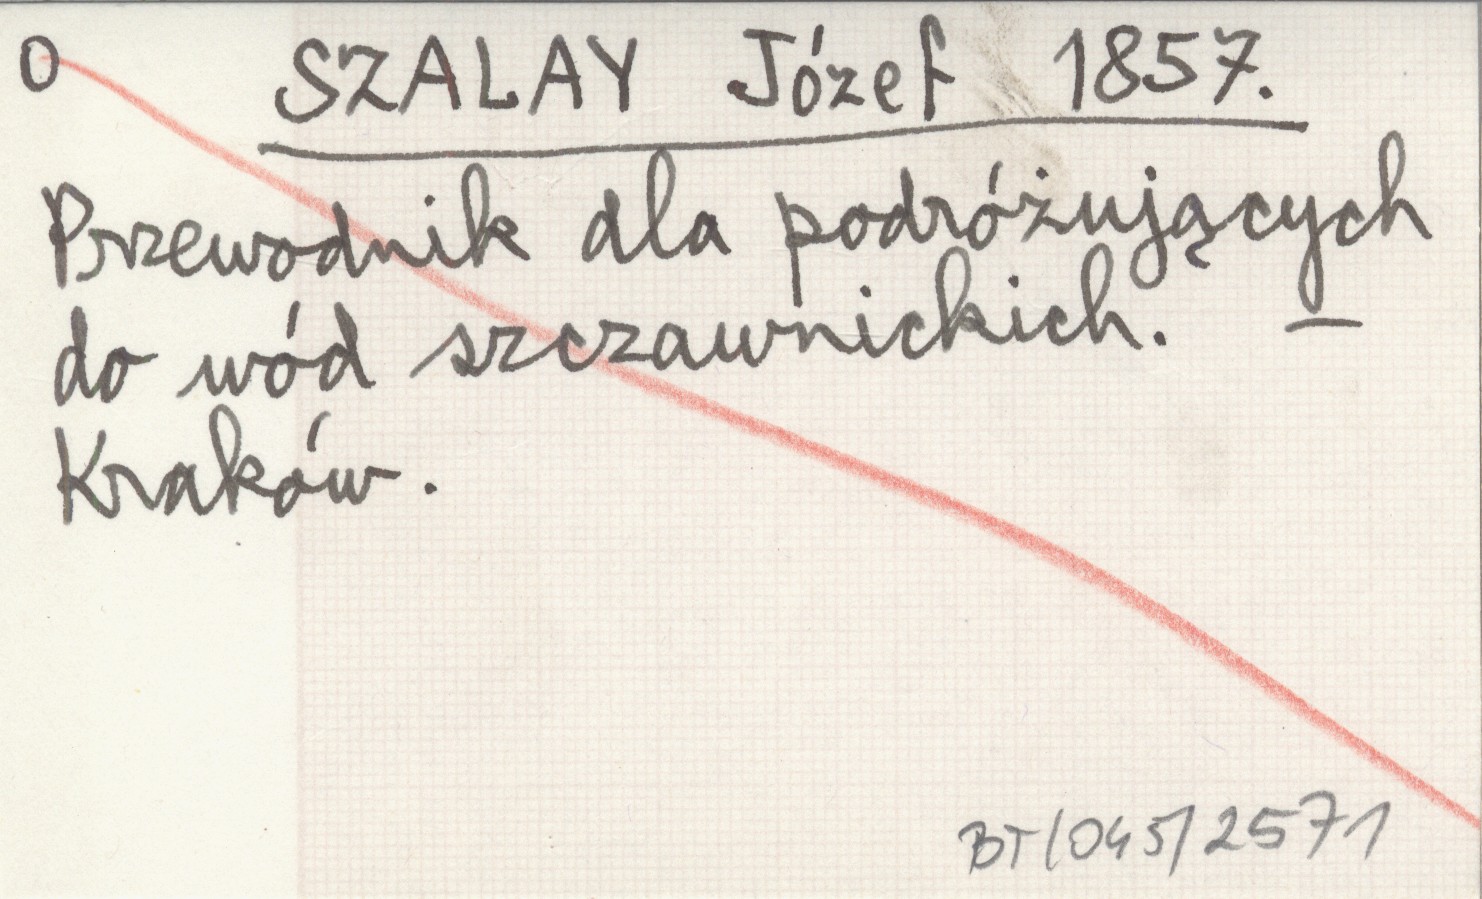 O SZALAY Józef 1857.
Przewodnik dla podróżujących
do wód szczawnickich. —
Kraków.
BT/045/2571